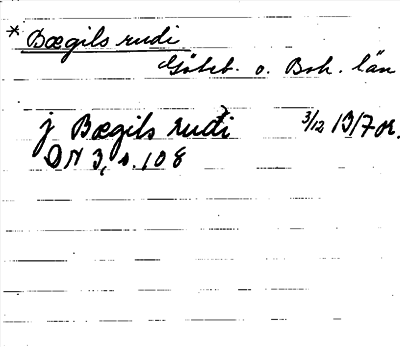 * Bægils rudi
Göteb. o. Boh. län
j Bægils rudi 3/12 1317 or.
DN 3, s. 108